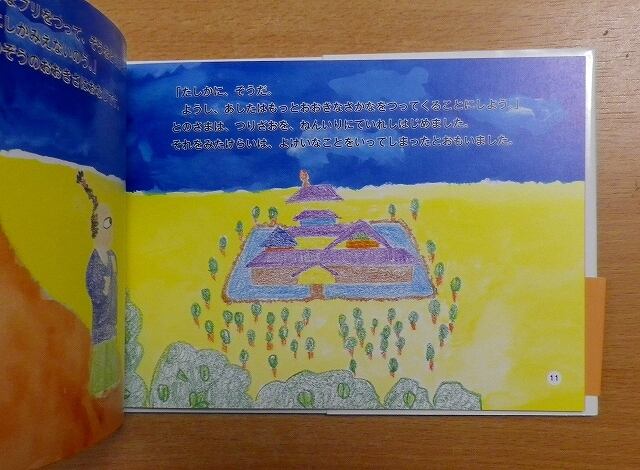 ブリをつって、
にしかみえないのう。」
ぞうのおおきさ
「たしかに、そうだ。
ようし、あしたはもっとおおきなさかなをつってくることにしよう。」
とのさまは、つりざおを、ねんいりにていれしはじめました。
それをみたけらいは、よけいなことをいってしまったとおもいました。
11